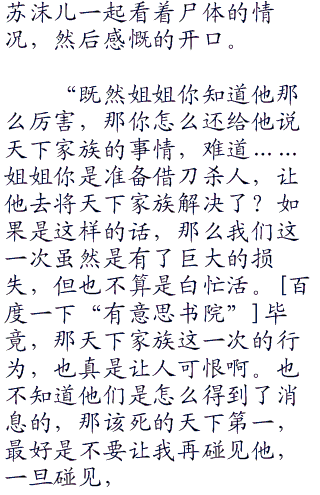 苏沫儿一起看着尸体的情
况，然后感慨的开口。
“既然姐姐你知道他那
么厉害，那你怎么还给他说
天下家族的事情，难道……
姐姐你是准备借刀杀人，让
他去将天下家族解决了？如
果是这样的话，那么我们这
一次虽然是有了巨大的损
失，但也不算是白忙活。[百
度一下“有意思书院”]毕
竟，那天下家族这一次的行
为，也真是让人可恨啊。也
不知道他们是怎么得到了消
息的，那该死的天下第一，
最好是不要让我再碰见他，
一旦碰见，